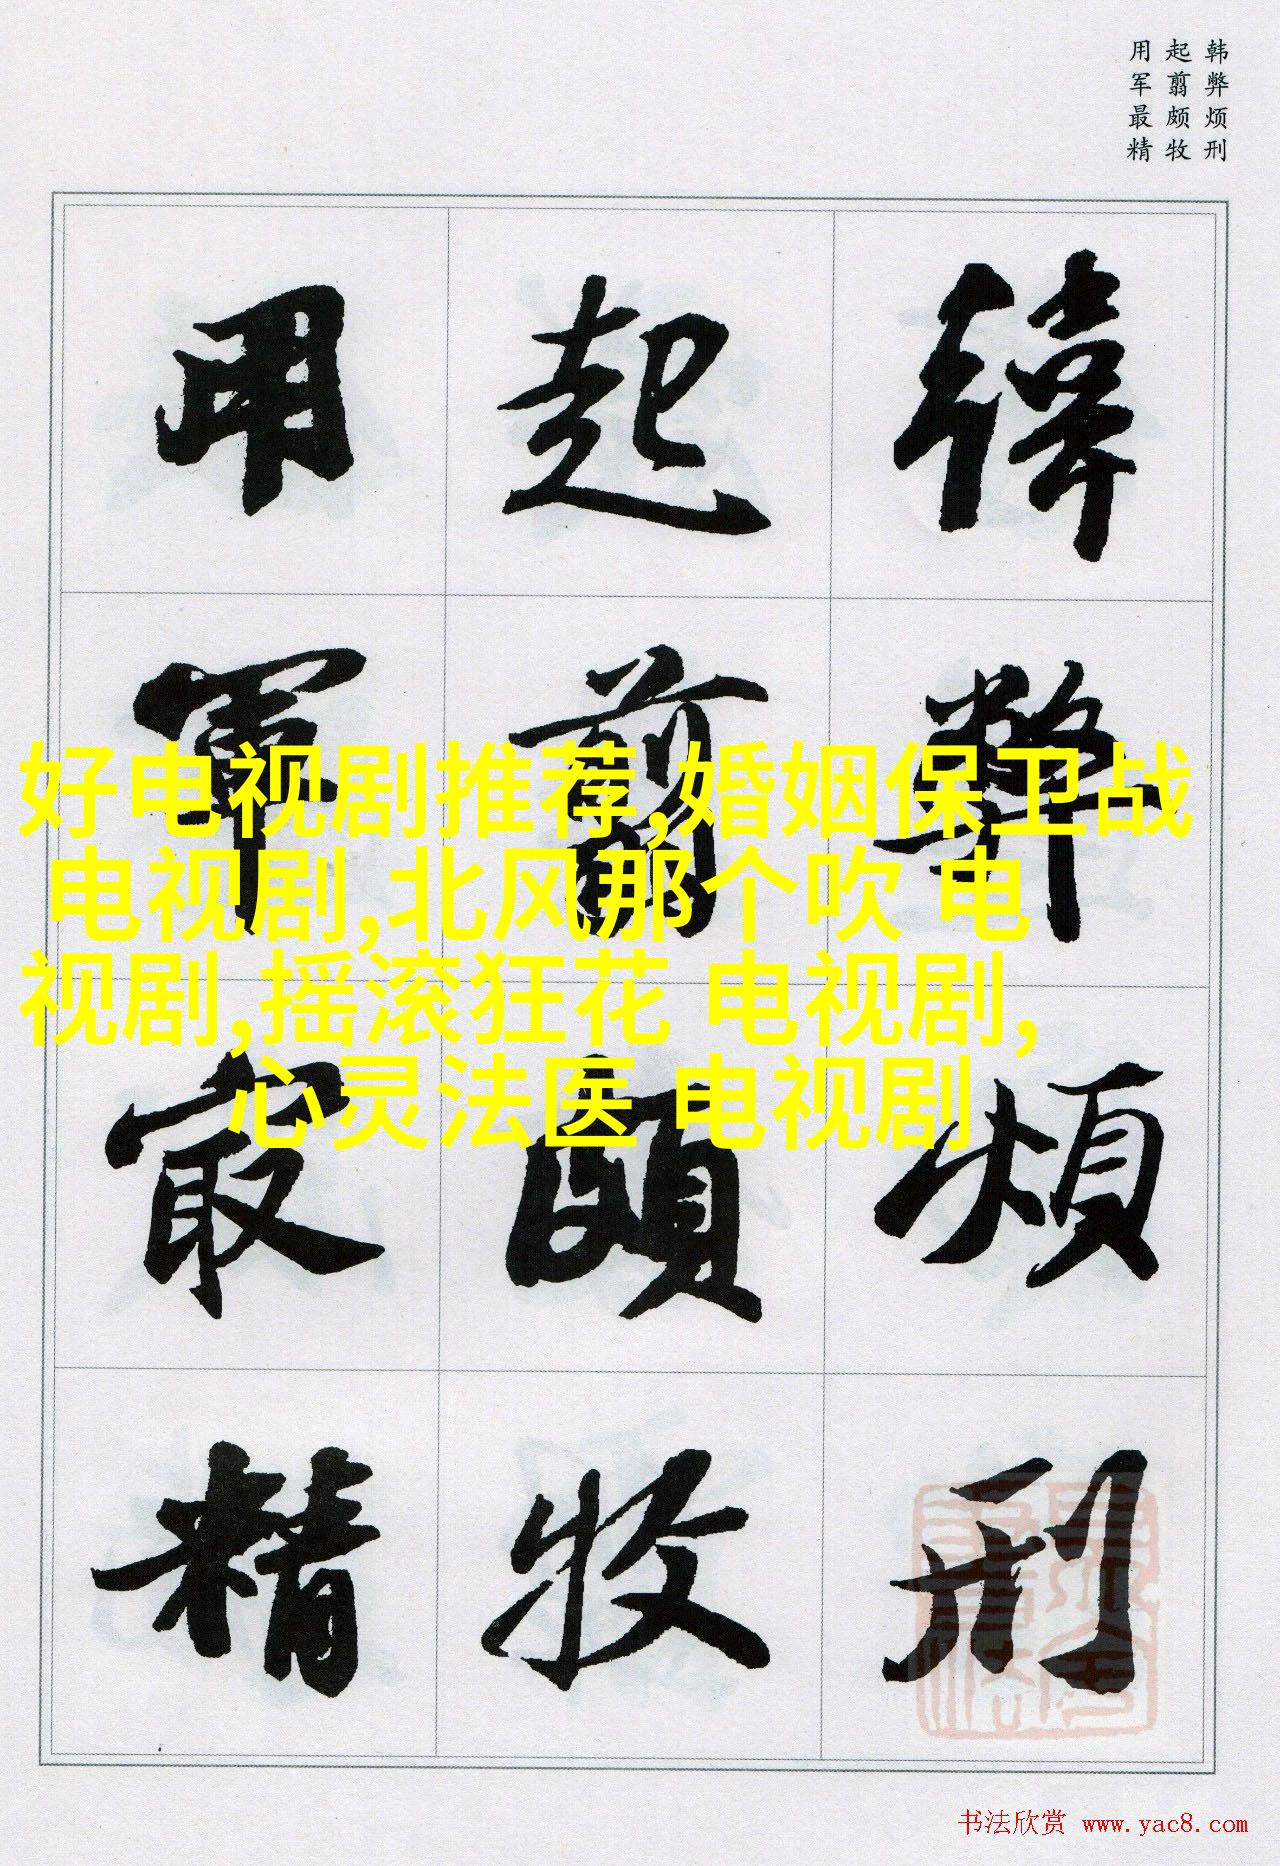 韩弊烦刑
起翦颇牧
用军最精
韓弊煩刑
起翦頗牧
用軍最精
好电视剧推荐,婚姻保卫战
电视剧,北风那个吹 电
视剧,摇滚狂花 电视剧,
心灵法医 电视剧
书法欣赏 www.yac8.com